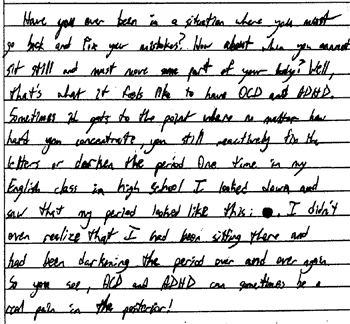 Have you ever been in a situation where you must
go back and fix your mistakes? How about when you cannot
sit still and must move some part of your body? Well,
that's what it feels like to have OCD and ADHD.
Sometimes it gets to the point where no matter how
hard you concentrate, you still reactively fix the
letters or darken the period. One time in my
English class in high school I looked down and
saw that my period looked like this: ●. I didn't
even realize that I had been sitting there and
had been darkening the period over and over again.
So you see, OCD and ADHD can sometimes be a
real pain in the posterior!